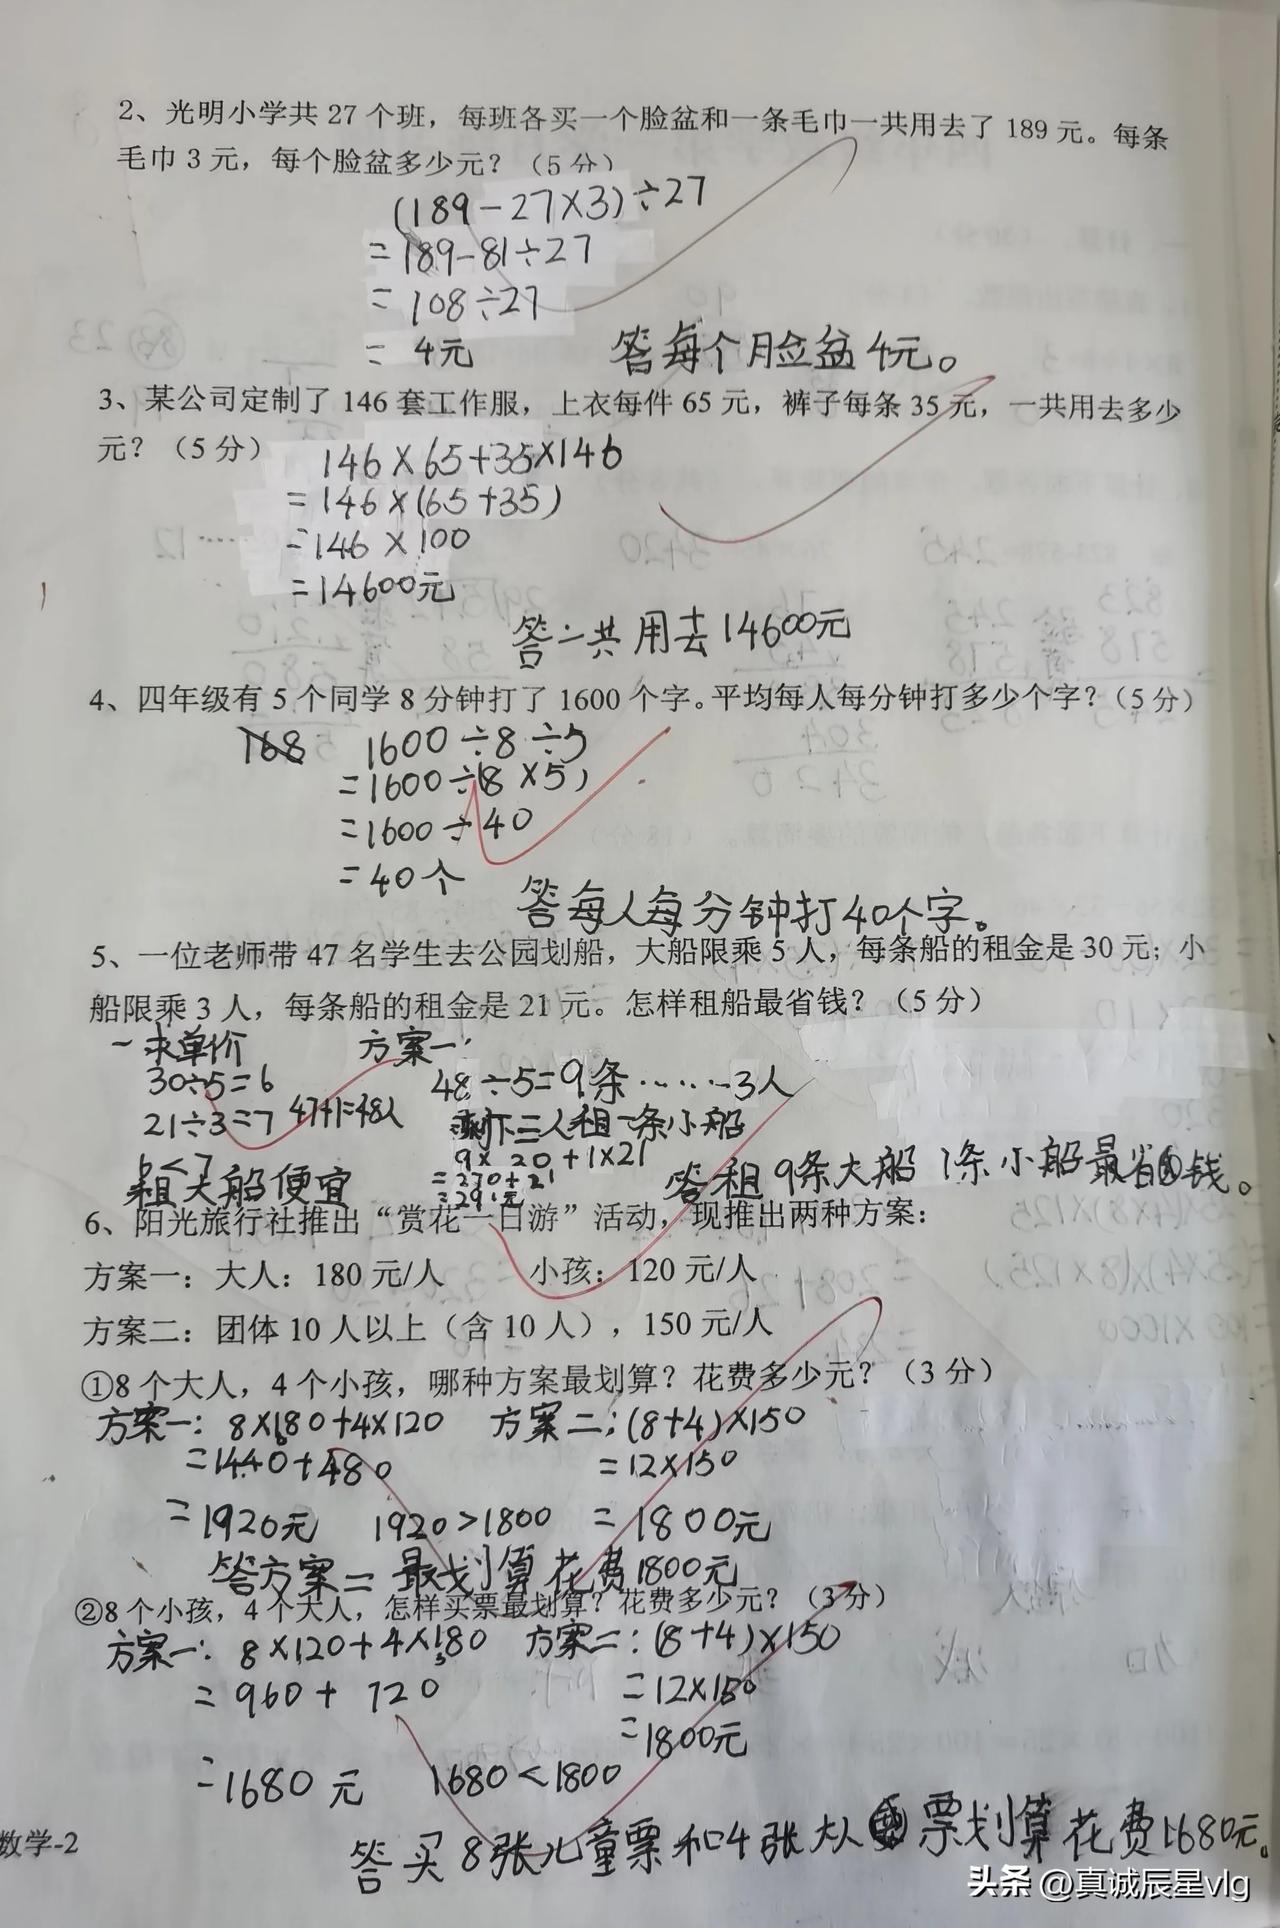 2、光明小学共 27 个班，每班各买一个脸盆和一条毛巾一共用去了 189 元。每条
毛巾 3 元，每个脸盆多少元？（5 分）
(189-27×3)÷27
=189-81÷27
=108÷27
=4元
答每个脸盆4元。
3、某公司定制了 146 套工作服，上衣每件 65 元，裤子每条 35 元，一共用去多少
元？（5 分）
146×65+35×146
=146×(65+35)
=146×100
=14600元
答一共用去14600元
4、四年级有 5 个同学 8 分钟打了 1600 个字。平均每人每分钟打多少个字？（5 分）
168 1600÷8÷5
=1600÷(8×5)
=1600÷40
=40个
答每人每分钟打40个字。
5、一位老师带 47 名学生去公园划船，大船限乘 5 人，每条船的租金是 30 元；小
船限乘 3 人，每条船的租金是 21 元。怎样租船最省钱？（5 分）
一求单价 方案一:
30÷5=6 48÷5=9条……3人
21÷3=7 47+1=48人 剩下三人租一条小船
6<7 9×20+1×21
租大船便宜 =270+21
=291元
答租9条大船1条小船最省钱。
6、阳光旅行社推出“赏花一日游”活动，现推出两种方案：
方案一：大人：180 元/人 小孩：120 元/人
方案二：团体 10 人以上（含 10 人），150 元/人
①8 个大人，4 个小孩，哪种方案最划算？花费多少元？（3 分）
方案一: 8×180+4×120 方案二:(8+4)×150
=1440+480 =12×150
=1920元 1920>1800 =1800元
答方案二最划算花费1800元
②8 个小孩，4 个大人，怎样买票最划算？花费多少元？（3 分）
方案一: 8×120+4×180 方案二:(8+4)×150
=960+720 =12×150
=1800元
=1680元 1680<1800
答买8张儿童票和4张大人票划算花费1680元。
数学-2
头条 @真诚辰星vlg